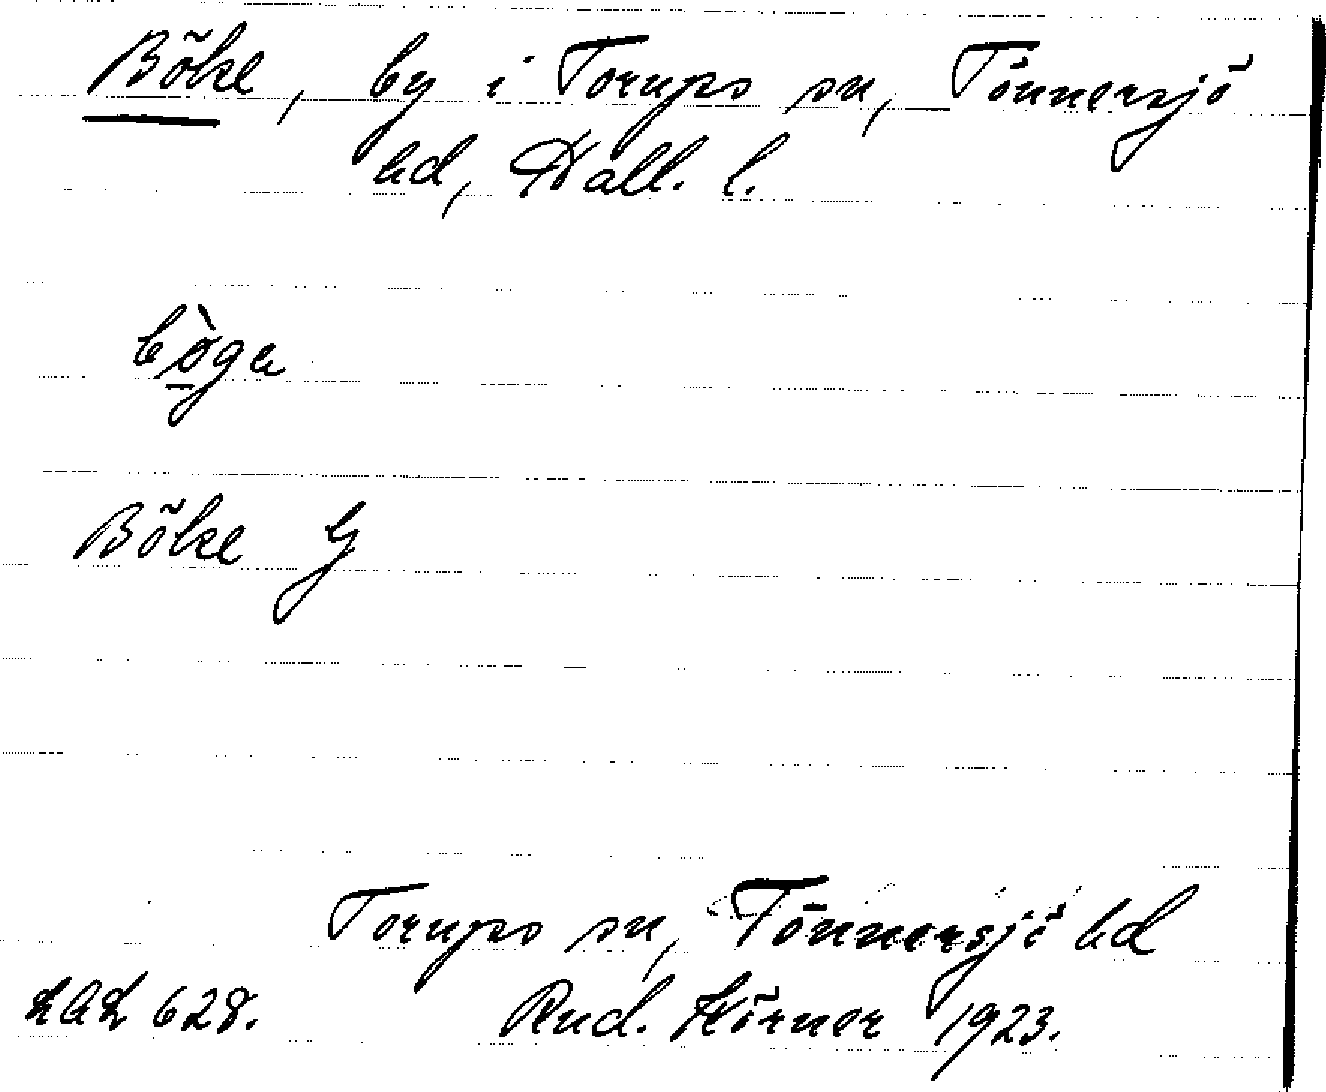 Böke, by i Torups sn, Tönnersjö
hd, Hall. l.
bò̱ga
Böke G
Torups sn, Tönnersjö hd
LAL 628. Rud. Körner 1923.